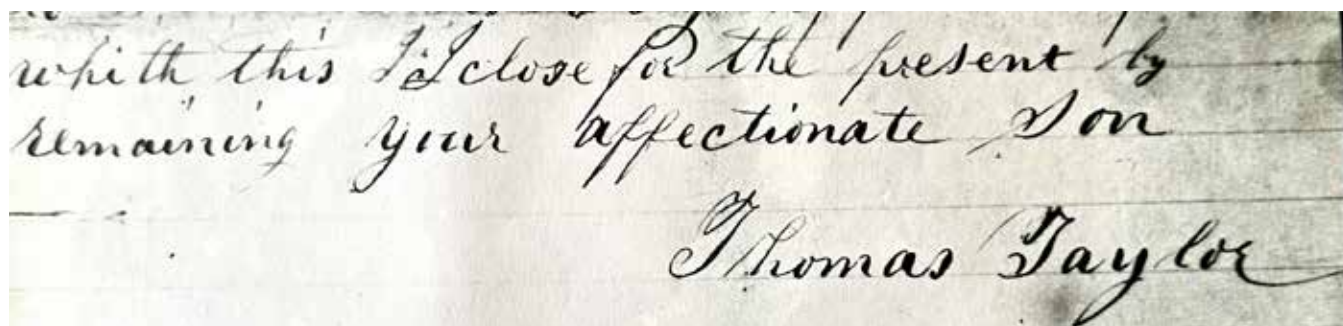 whith this I I close for the present by
remaining your affectionate Son
Thomas Taylor